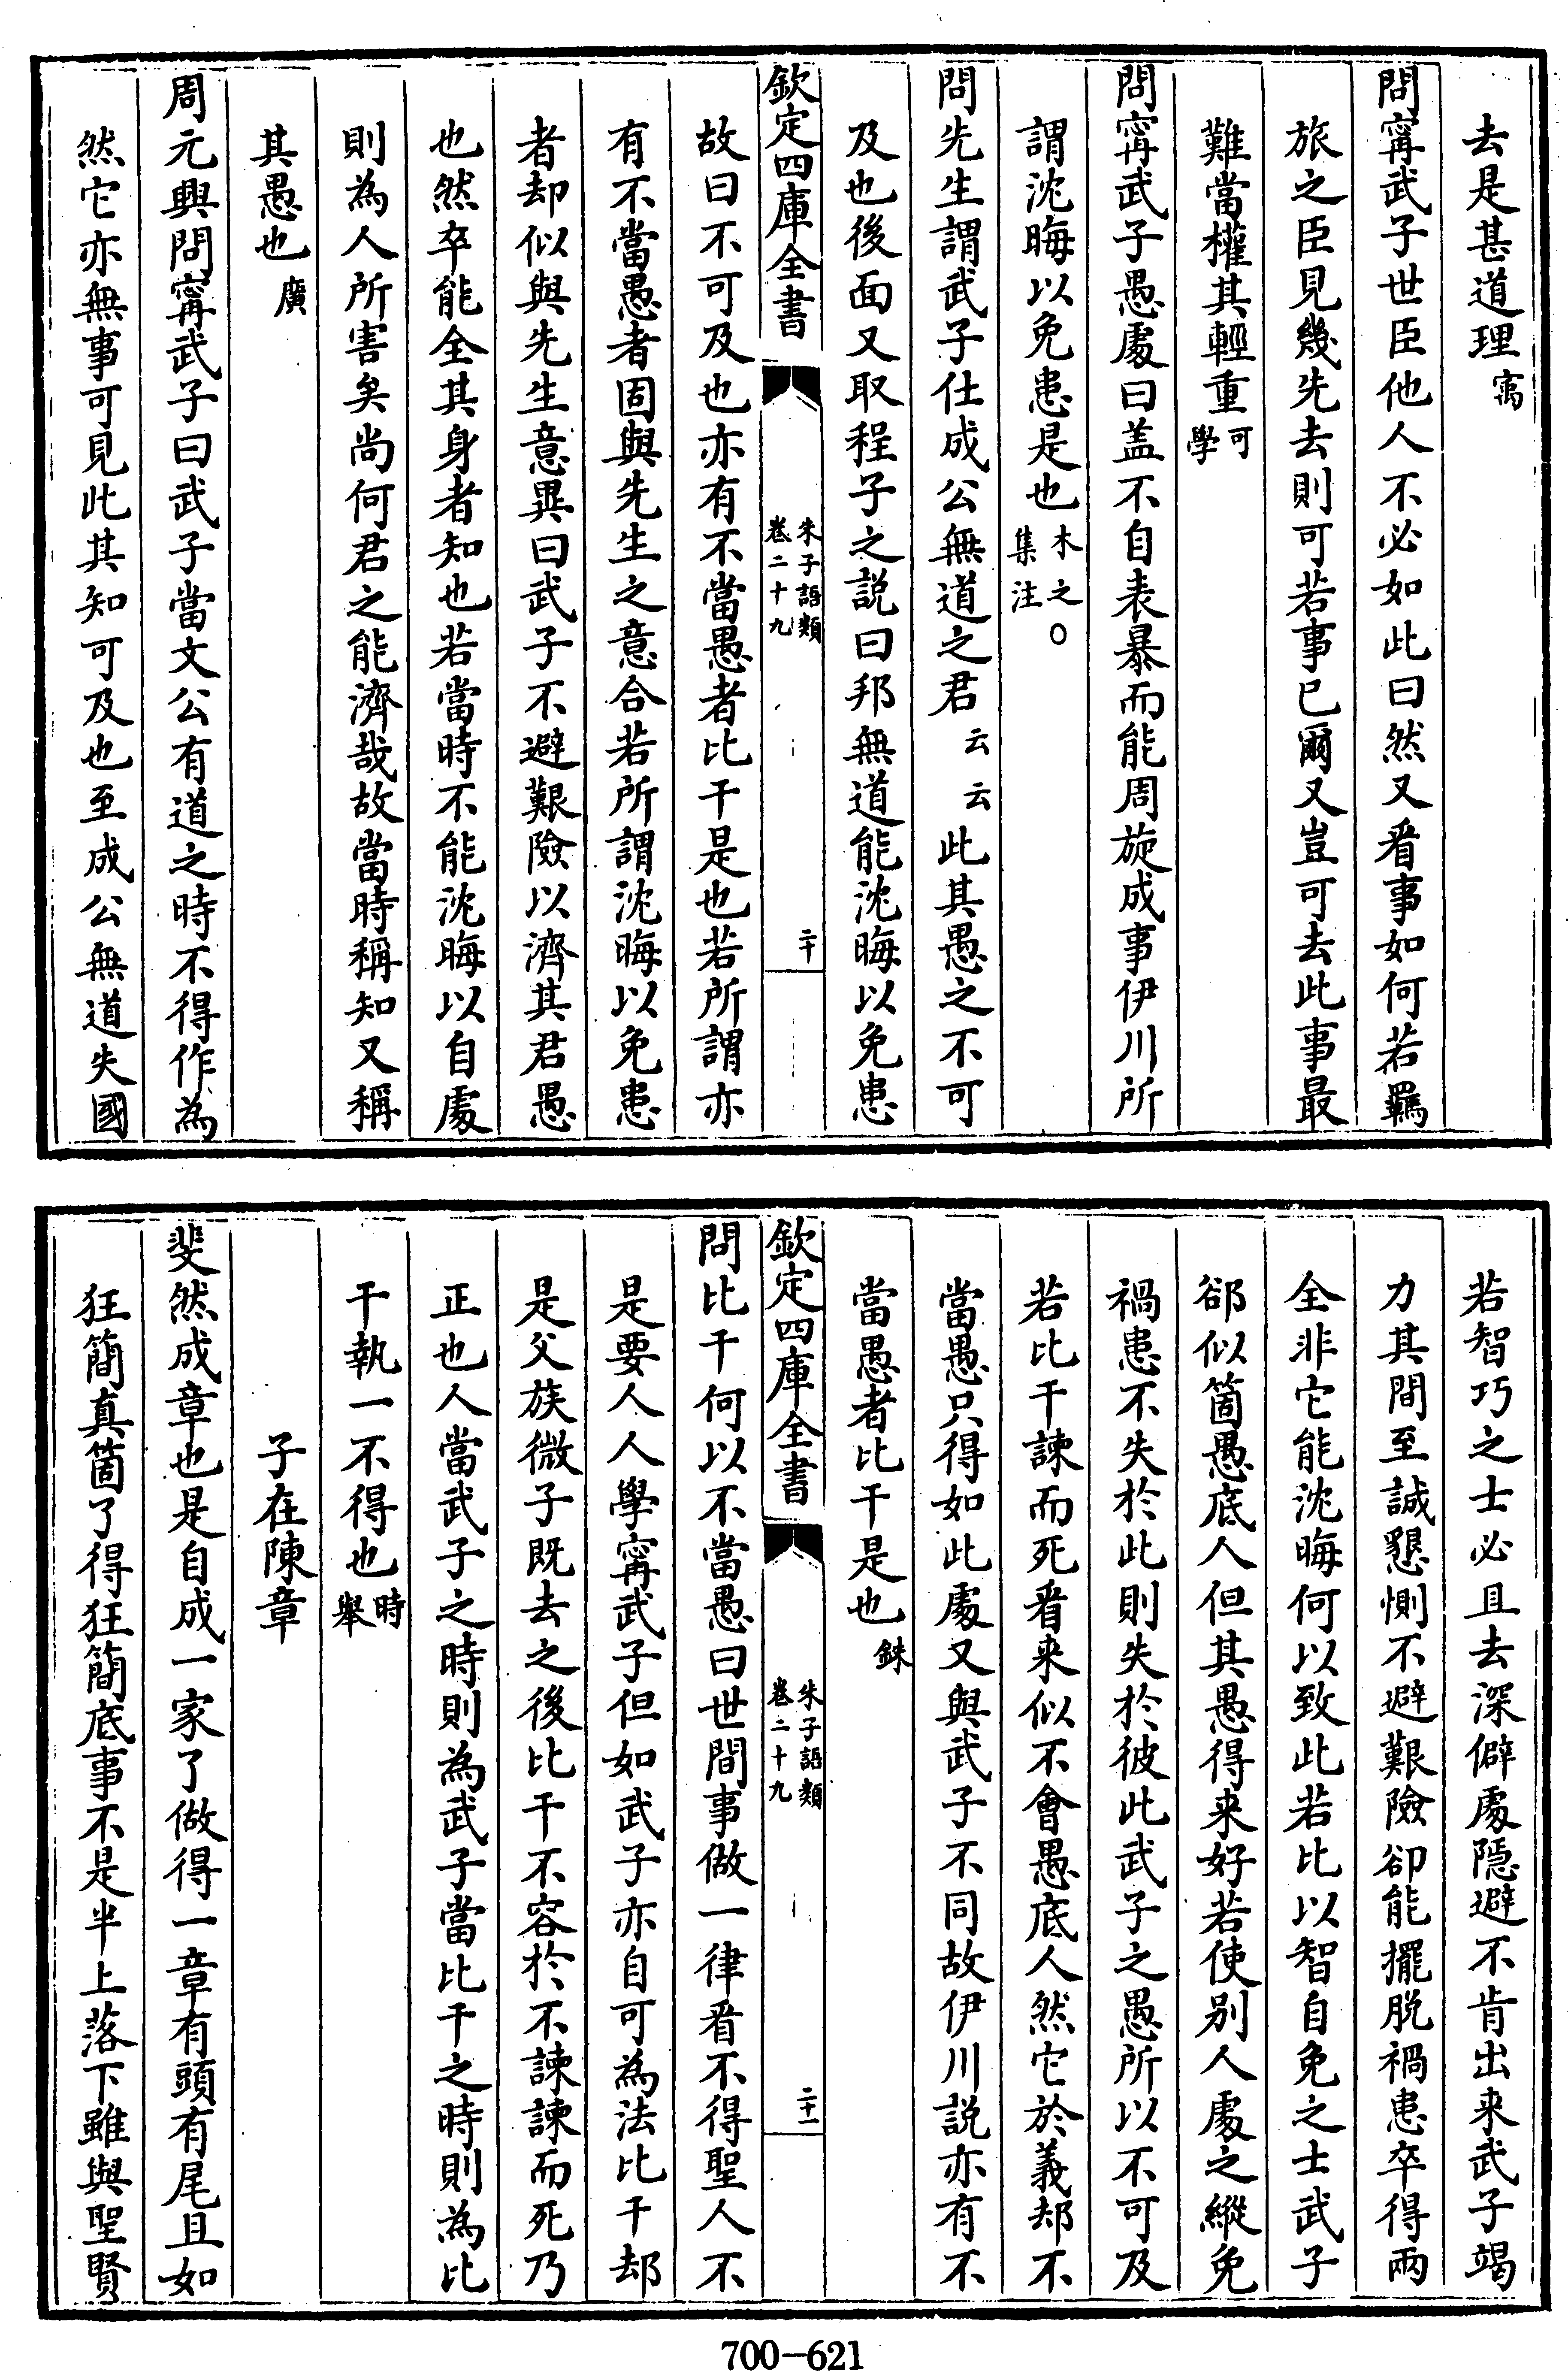 去是甚道理㝢
問寗武子世臣他人不必如此曰然又㸔事如何若羈
旅之臣見幾先去則可若事已爾又豈可去此事最
難當權其輕重可學
問寗武子愚處曰盖不自表暴而能周旋成事伊川所
謂沈晦以免患是也木之○集注
問先生謂武子仕成公無道之君云云此其愚之不可
及也後面又取程子之説曰邦無道能沈晦以免患
欽定四庫全書
朱子語類
卷二十九
二十
故曰不可及也亦有不當愚者比干是也若所謂亦
有不當愚者固與先生之意合若所謂沈晦以免患
者却似與先生意異曰武子不避艱險以濟其君愚
也然卒能全其身者知也若當時不能沈晦以自處
則為人所害矣尚何君之能濟哉故當時稱知又稱
其愚也廣
周元興問寗武子曰武子當文公有道之時不得作為
然它亦無事可見此其知可及也至成公無道失國
若智巧之士必且去深僻處隠避不肯出来武子竭
力其間至誠懇惻不避艱險卻能擺脱禍患卒得兩
全非它能沈晦何以致此若比以智自免之士武子
郤似箇愚底人但其愚得来好若使别人處之縱免
禍患不失於此則失於彼此武子之愚所以不可及
若比干諫而死㸔来似不會愚底人然它於義却不
當愚只得如此處又與武子不同故伊川説亦有不
當愚者比干是也銖
欽定四庫全書
朱子語類
卷二十九
二十一
問比干何以不當愚曰世間事做一律㸔不得聖人不
是要人人學寗武子但如武子亦自可為法比干却
是父族微子既去之後比干不容於不諫諫而死乃
正也人當武子之時則為武子當比干之時則為比
干執一不得也時舉
子在陳章
斐然成章也是自成一家了做得一章有頭有尾且如
狂簡真箇了得狂簡底事不是半上落下雖與聖賢
700-621